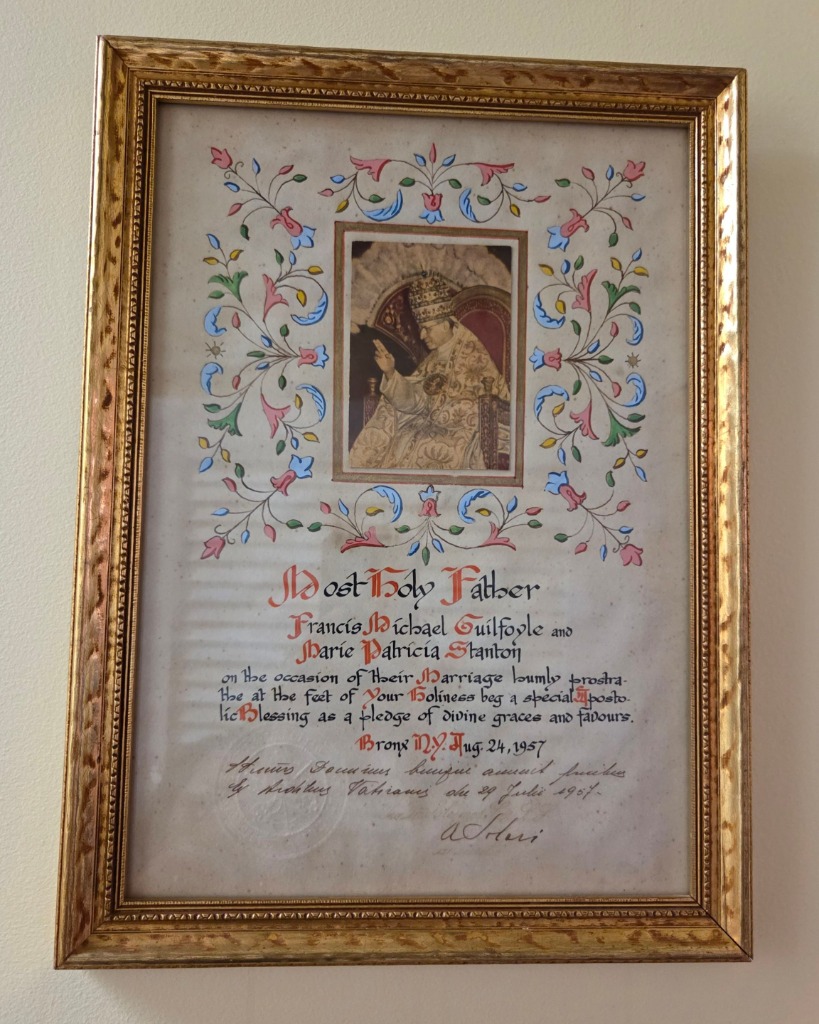 Most Holy Father
Francis Michael Guilfoyle and
Marie Patricia Stanton
on the occasion of their Marriage humly prostra-
the at the feet of Your Holiness beg a special Aposto-
lic Blessing as a pledge of divine graces and favours.
Bronx N.Y. Aug. 24, 1957
Dominus benigne annuit precibus
Ex Aedibus Vaticanis die 29 Julii 1957.